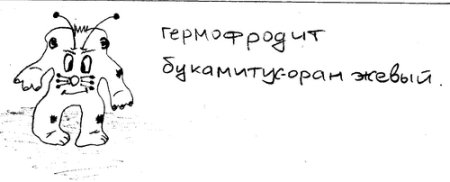 гермофродит
букамитус-оранжевый.